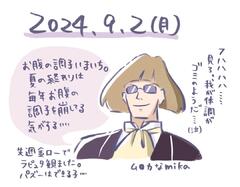 2024.9.2(月)
お腹の調子いまいち。
夏の終わりは
毎年お腹の
調子を崩している
気がする…
アハハハハ……
見ろ、我が体調が
ゴミのようだ…
(泣)
先週金ローで
ラピュタ観ました。
パズーはできる子…
ムロカなmika